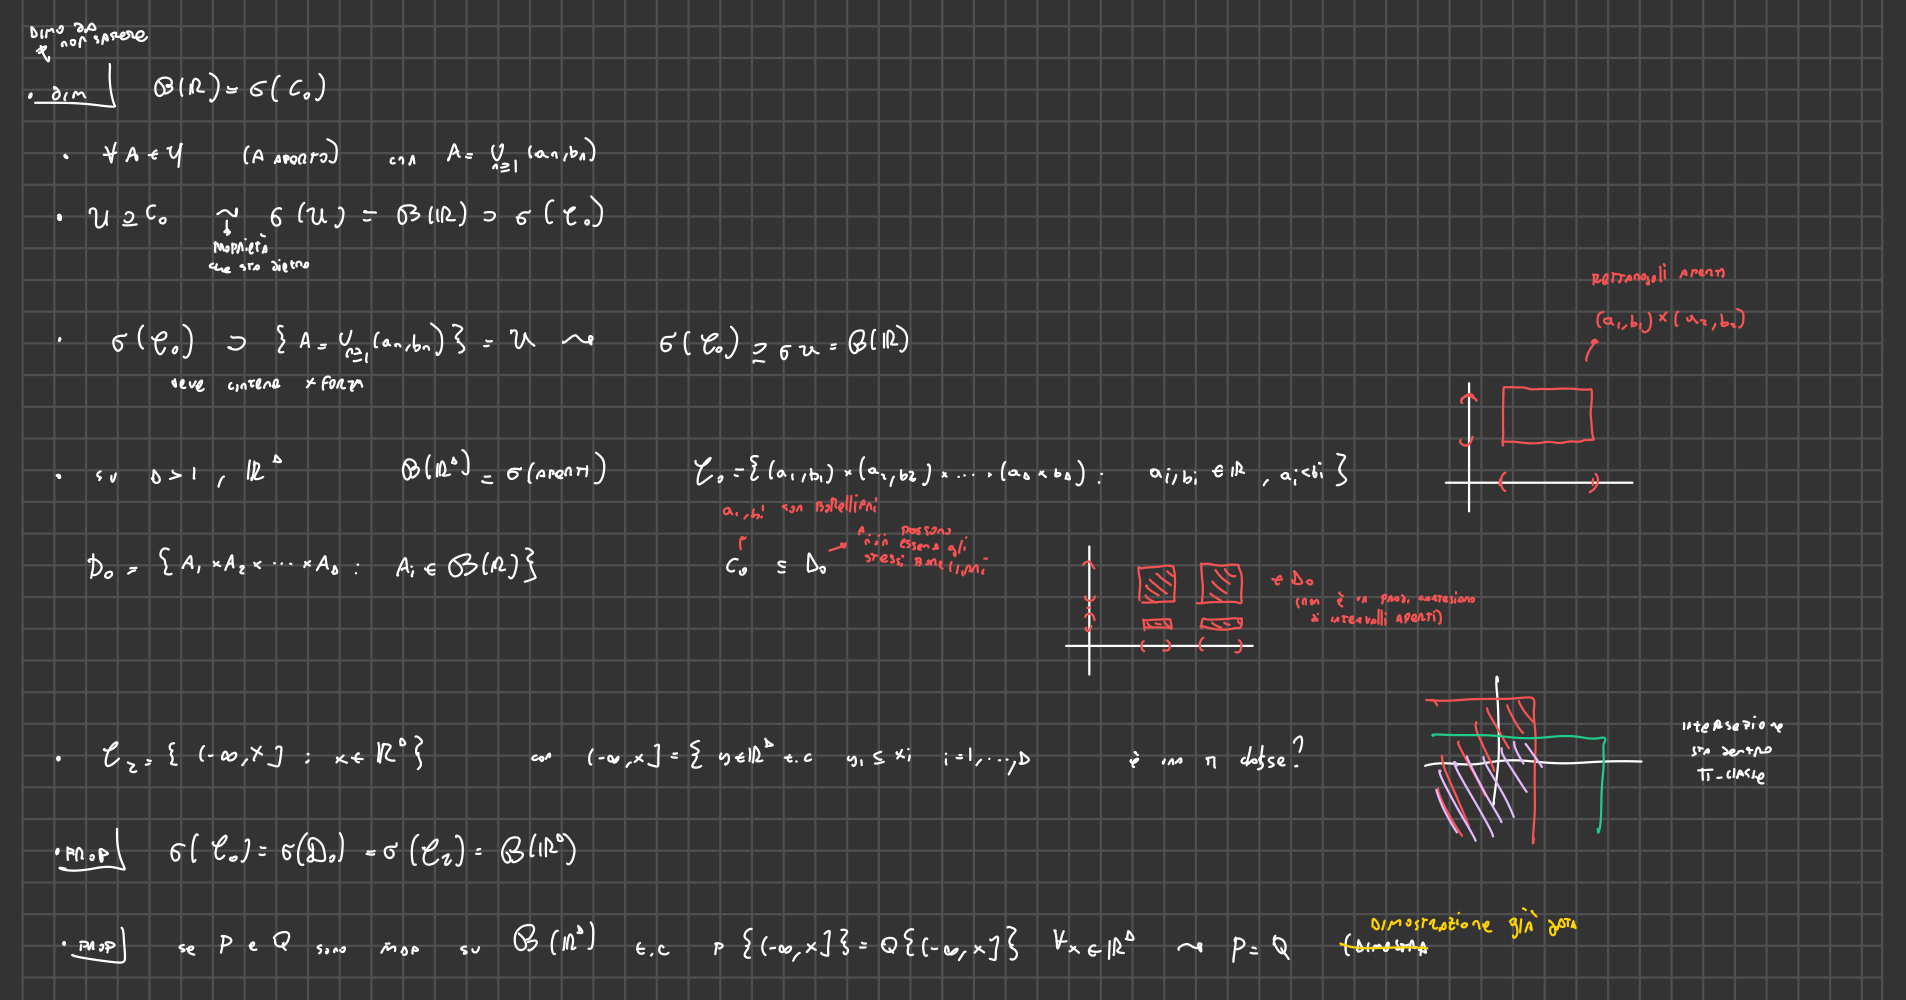 DIMO DA
NON SAPERE
• DIM B(ℝ) = σ(C₀)
• ∀ A ∈ U (A APERTO) con A = ∪ₙ≥₁ (aₙ, bₙ)
• U ⊇ C₀ ⤳ σ(U) = B(ℝ) ⊃ σ(C₀)
PROPRIETÀ
CHE STA DIETRO
• σ(C₀) ⊃ { A = ∪ₙ≥₁ (aₙ, bₙ) } = U ⤳ σ(C₀) ⊇ σ U = B(ℝ)
deve contene x FORZA
RETTANGOLI APERTI
(a₁, b₁) × (a₂, b₂)
• SU D > 1 , ℝᴰ B(ℝᴰ) = σ(APERTI) C₀ = { (a₁, b₁) × (a₂, b₂) × ... × (a_D × b_D) : aᵢ, bᵢ ∈ ℝ , aᵢ < bᵢ }
aᵢ, bᵢ son BORELLIANI
D₀ = { A₁ × A₂ × ... × A_D : Aᵢ ∈ B(ℝ) } C₀ ⊆ D₀
Aᵢ POSSONO
NON ESSERE gli
STESSI
∈ D₀
(non è un PROD. CARTESIANO
di intervalli APERTI)
• C₂ = { (-∞, x] : x ∈ ℝᴰ } con (-∞, x] = { y ∈ ℝᴰ t.c yᵢ ≤ xᵢ i = 1, ..., D è una π classe?
intersezione
sta dentro
π-classe
• PROP σ(C₀) = σ(D₀) = σ(C₂) = B(ℝᴰ)
• PROP se P e Q sono PROB su B(ℝᴰ) t.c P{(-∞, x]} = Q{(-∞, x]} ∀x ∈ ℝᴰ ⤳ P = Q
DIMOSTRAZIONE già data